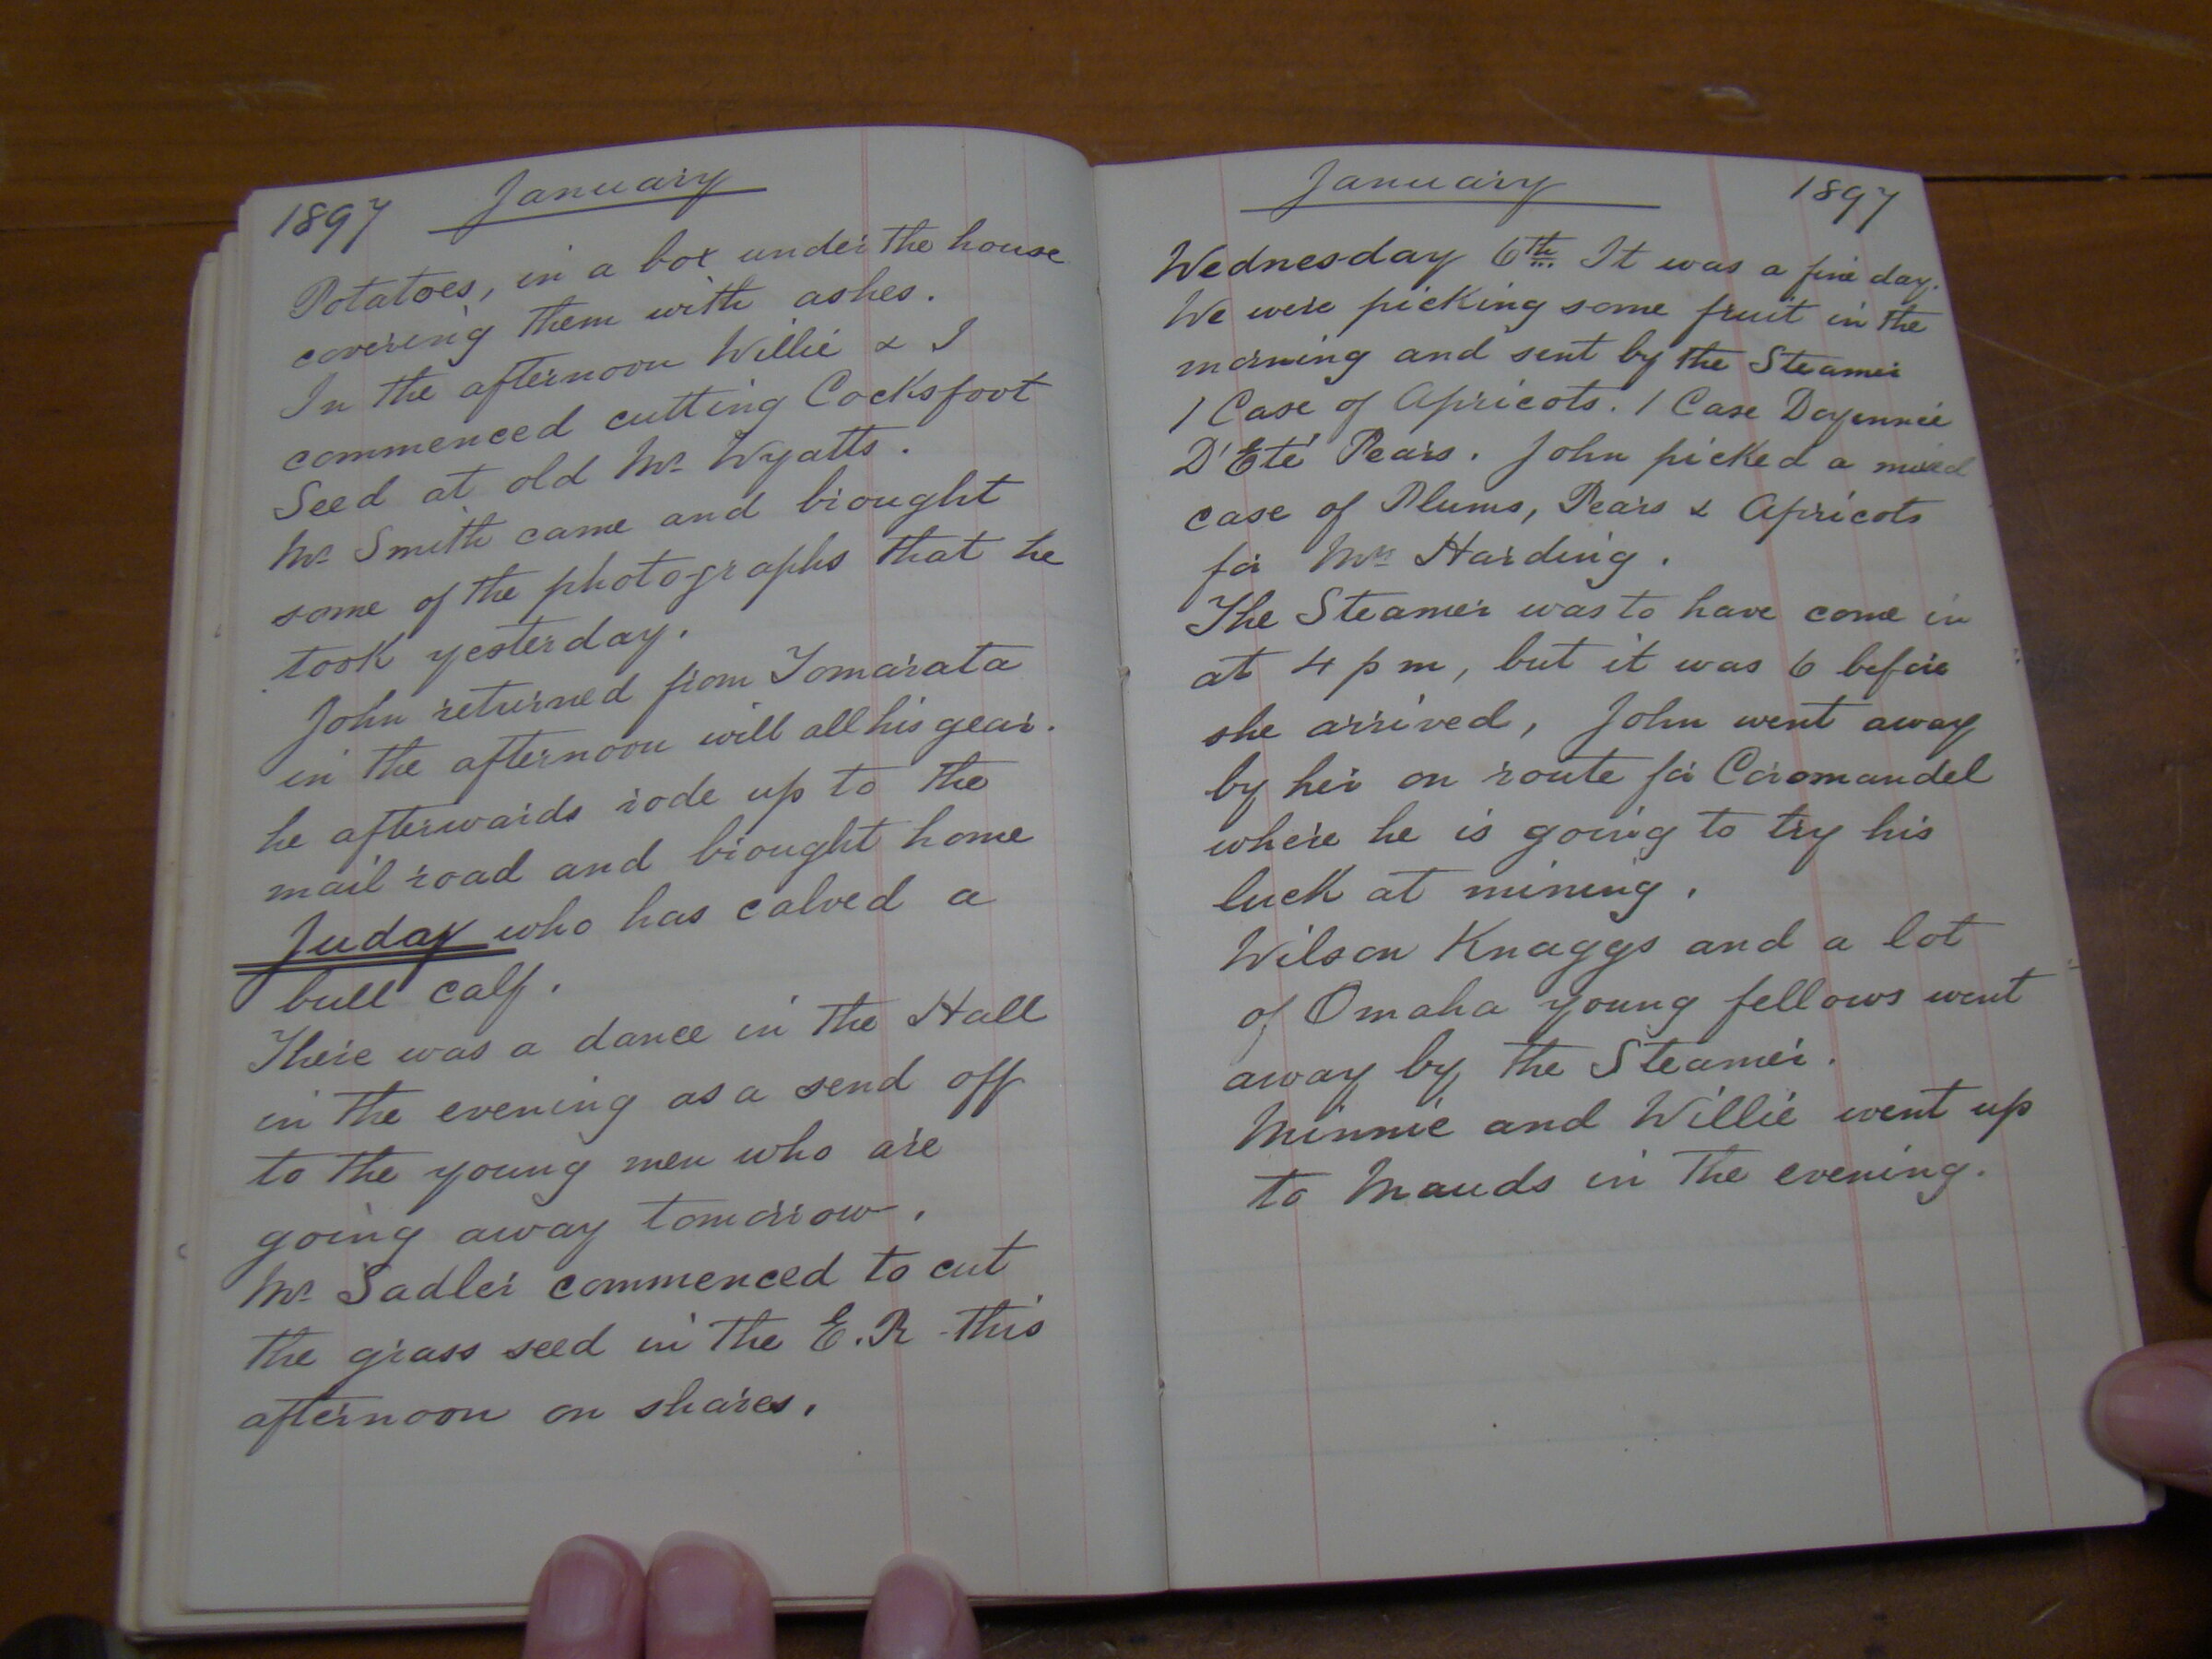 1897 January
Potatoes, in a box under the house
covering them with ashes.
In the afternoon Willie & I
commenced cutting Cocksfoot
Seed at old Mr Wyatts.
Mr Smith came and brought
some of the photographs that he
took yesterday.
John returned from Tomarata
in the afternoon will all his gear.
he afterwards rode up to the
mail road and brought home
Juday who has calved a
bull calf.
There was a dance in the Hall
in the evening as a send off
to the young men who are
going away tomorrow.
Mr Sadler commenced to cut
the grass seed in the E.R this
afternoon on shares.
January 1897
Wednesday 6th It was a fine day.
We were picking some fruit in the
morning and sent by the Steamer
1 Case of Apricots. 1 Case Doyennie
D'Eté Pears. John picked a mixed
case of Plums, Pears & Apricots
for Mrs Harding.
The Steamer was to have come in
at 4 pm, but it was 6 before
she arrived, John went away
by her on route for Coromandel
where he is going to try his
luck at mining.
Wilson Knaggs and a lot
of Omaha young fellows went
away by the Steamer.
Minnie and Willie went up
to Mauds in the evening.